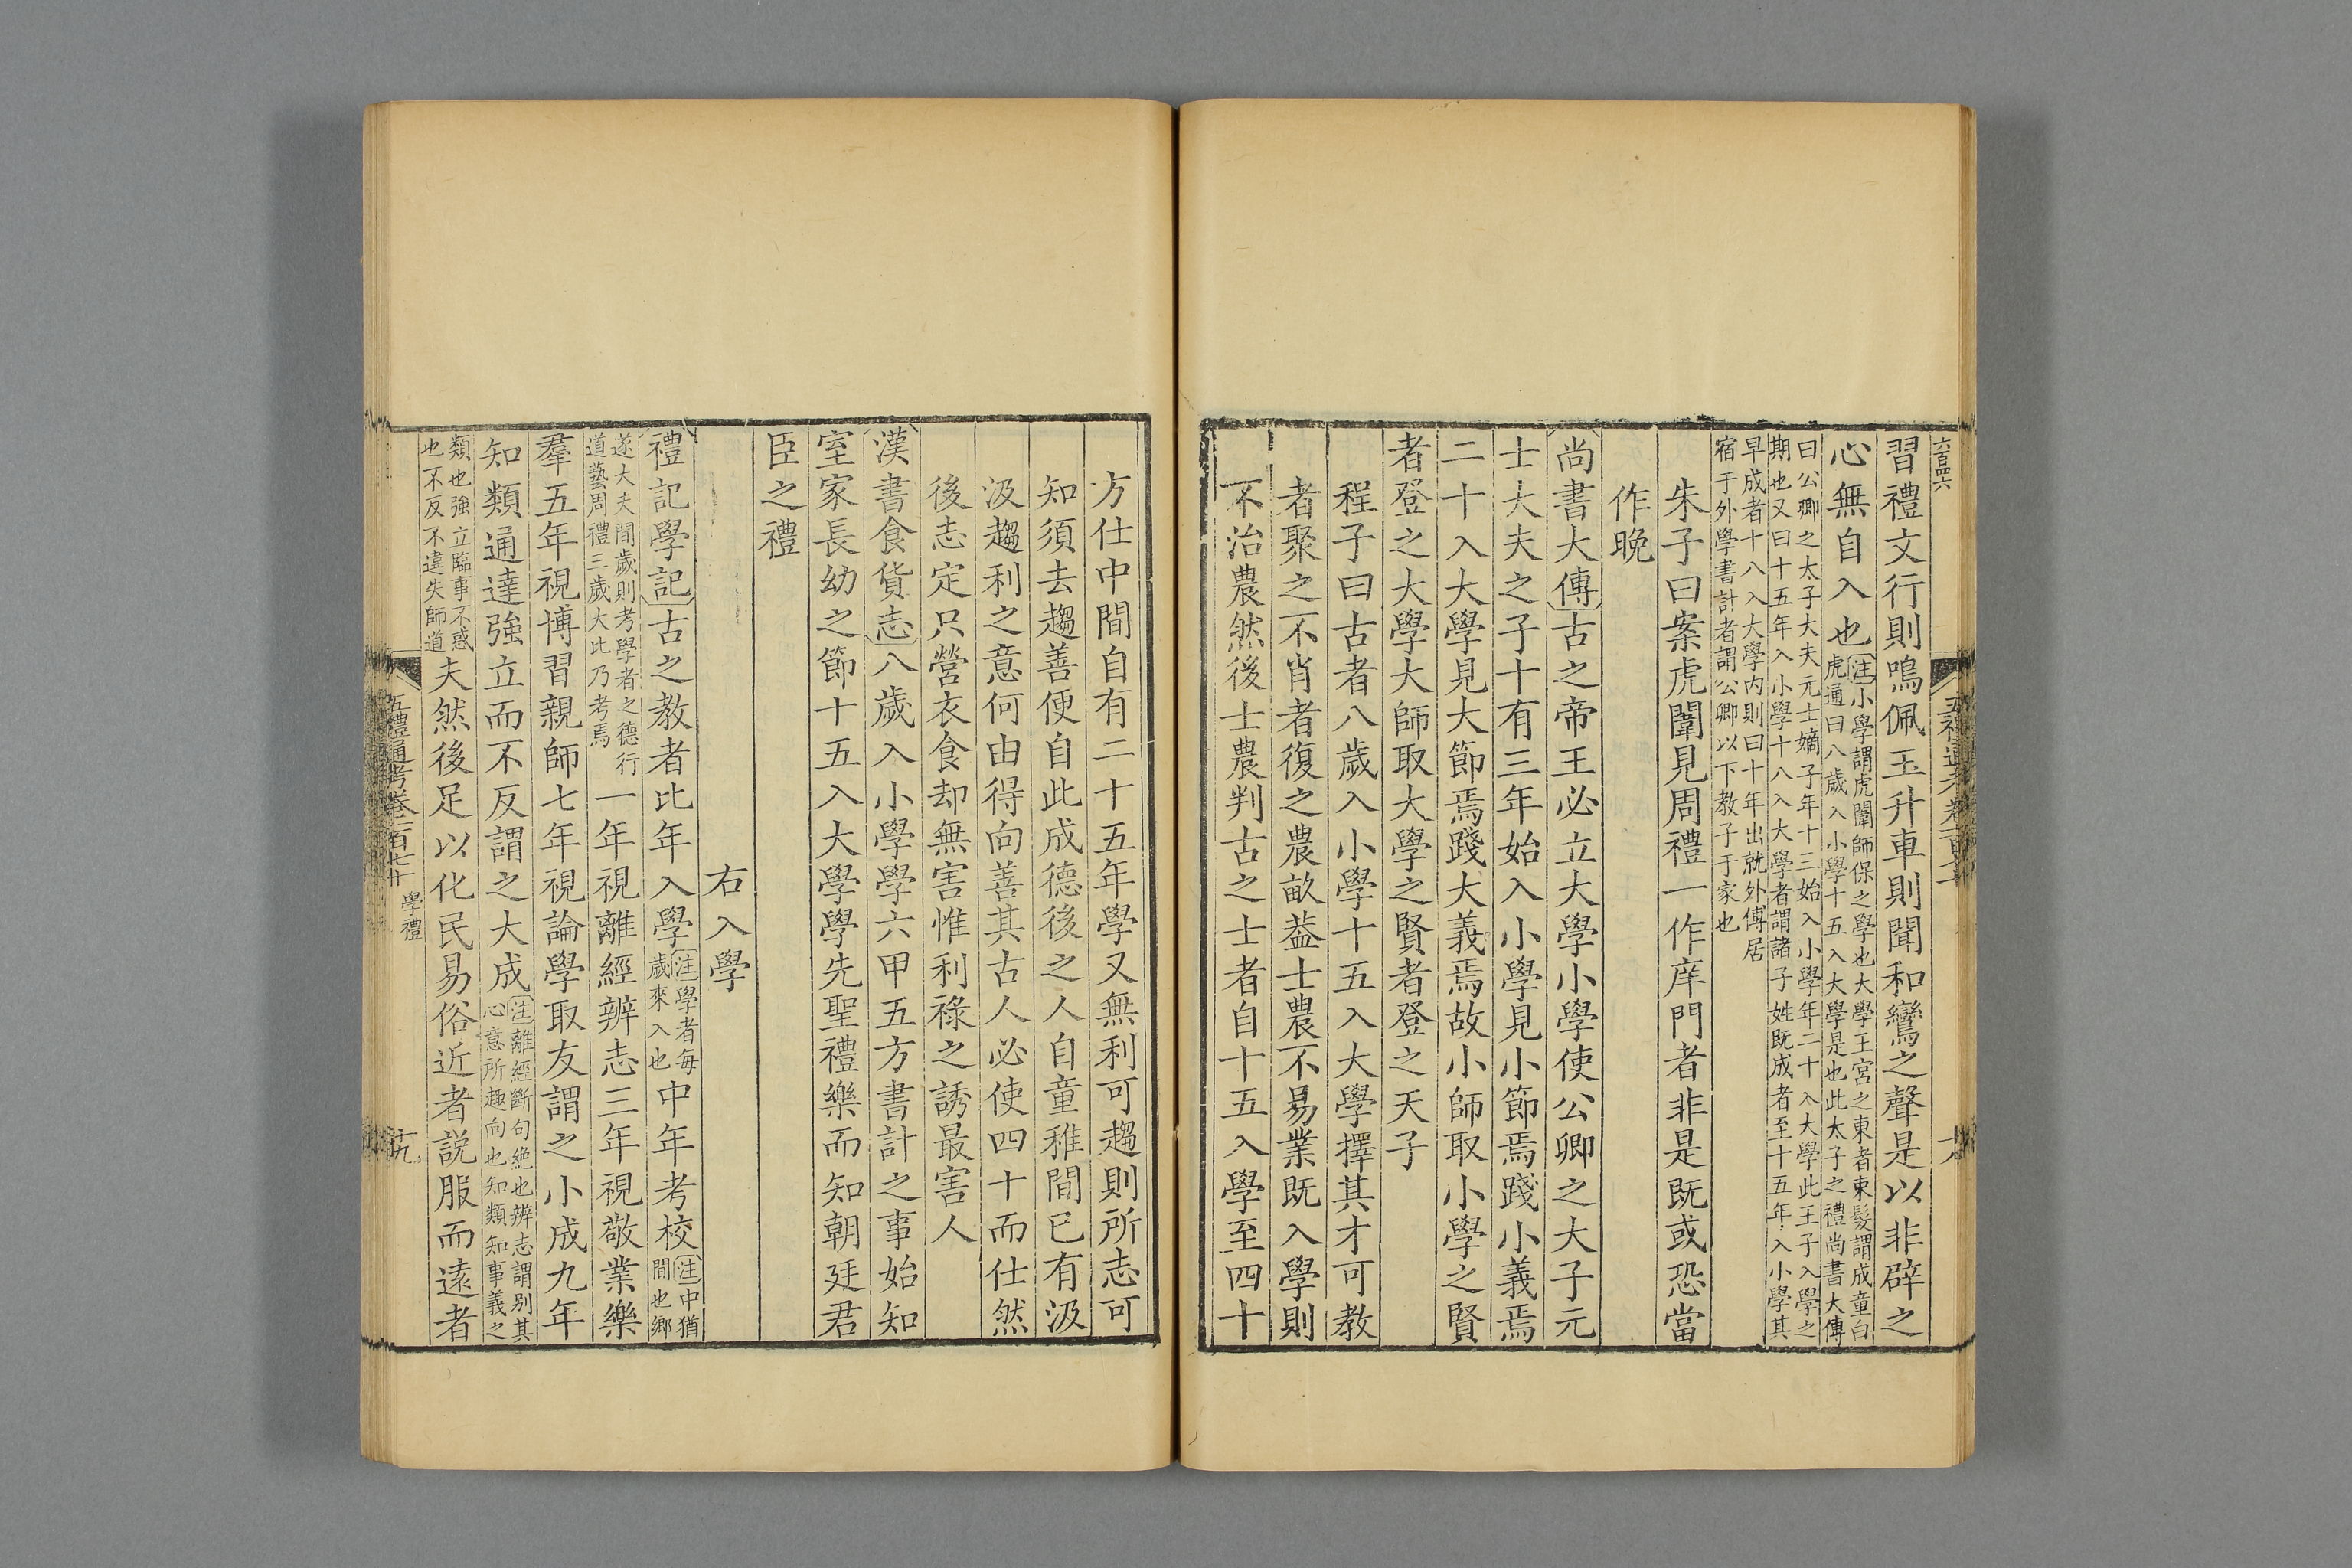 六百四六
習禮文行則鳴佩玉升車則聞和鸞之聲是以非辟之
心無自入也注小學謂虎闈師保之學也大學王宮之東者束髮謂成童白
虎通曰八歲入小學十五入大學是也此太子之禮尚書大傳
曰公卿之太子大夫元士嫡子年十三始入小學年二十入大學此王子入學之
期也又曰十五年入小學十八入大學者謂諸子姓既成者至十五年入小學其
早成者十八入大學內則曰十年出就外傅居
宿于外學書計者謂公卿以下教子于家也
朱子曰案虎闈見周禮一作庠門者非是既或恐當
作晚
尚書大傳古之帝王必立大學小學使公卿之大子元
士大夫之子十有三年始入小學見小節焉踐小義焉
二十入大學見大節焉踐大義焉故小師取小學之賢
者登之大學大師取大學之賢者登之天子
程子曰古者八歲入小學十五入大學擇其才可教
者聚之不肖者復之農畝蓋士農不易業既入學則
不治農然後士農判古之士者自十五入學至四十
方仕中間自有二十五年學又無利可趨則所志可
知須去趨善便自此成德後之人自童稚間已有汲
汲趨利之意何由得向善其古人必使四十而仕然
後志定只營衣食却無害惟利祿之誘最害人
漢書食貨志八歲入小學學六甲五方書計之事始知
室家長幼之節十五入大學學先聖禮樂而知朝廷君
臣之禮
右入學
禮記學記古之教者比年入學注學者每
歲來入也中年考校注中猶
間也鄉
遂大夫間歲則考學者之德行
道藝周禮三歲大比乃考焉一年視離經辨志三年視敬業樂
羣五年視博習親師七年視論學取友謂之小成九年
知類通達強立而不反謂之大成注離經斷句絶也辨志謂別其
心意所趣向也知類知事義之
類也強立臨事不惑
也不反不違失師道夫然後足以化民易俗近者説服而遠者
五禮通考卷一百七十 學禮 十九